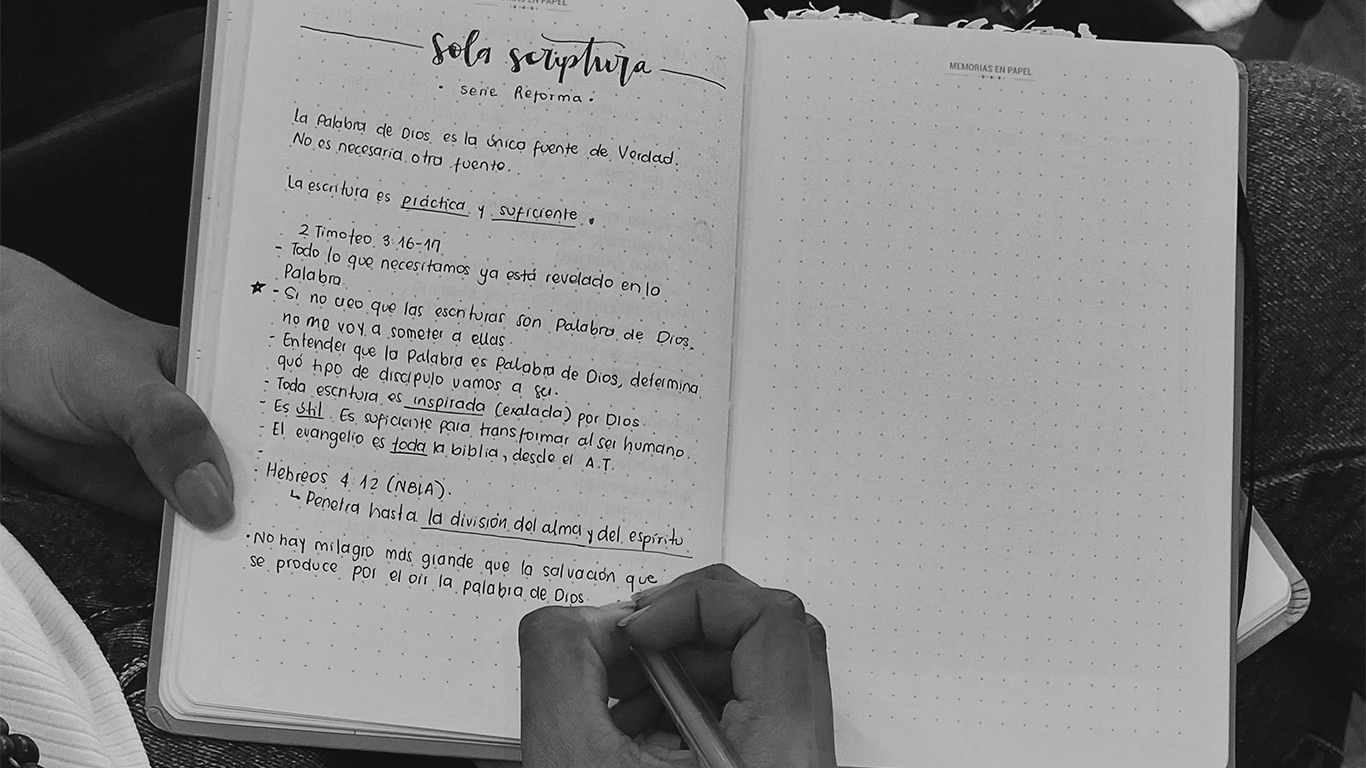 MEMORIAS EN PAPEL
sola scriptura
• serie Reforma •
La Palabra de Dios es la única fuente de Verdad.
No es necesaria otra fuente.
La escritura es práctica y suficiente.
2 Timoteo 3:16-17
- Todo lo que necesitamos ya está revelado en la
Palabra.
★ - Si no creo que las escrituras son Palabra de Dios,
no me voy a someter a ellas.
- Entender que la Palabra es Palabra de Dios, determina
qué tipo de discípulo vamos a ser.
- Toda escritura es inspirada (exalada) por Dios.
- Es útil. Es suficiente para transformar al ser humano.
- El evangelio es toda la biblia, desde el A.T.
-
: Hebreos 4:12 (NBLA).
↳ Penetra hasta la división del alma y del espíritu
• No hay milagro más grande que la salvación que
se produce por el oír la palabra de Dios
MEMORIAS EN PAPEL